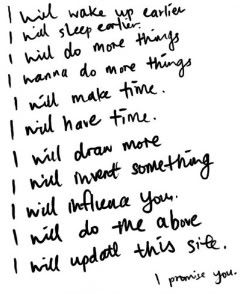 I will wake up earlier
I will sleep earlier.
I will do more things
I wanna do more things
I will make time.
I will have time.
I will draw more
I will invent something
I will influence you.
I will do the above
I will update this site.
I promise you.